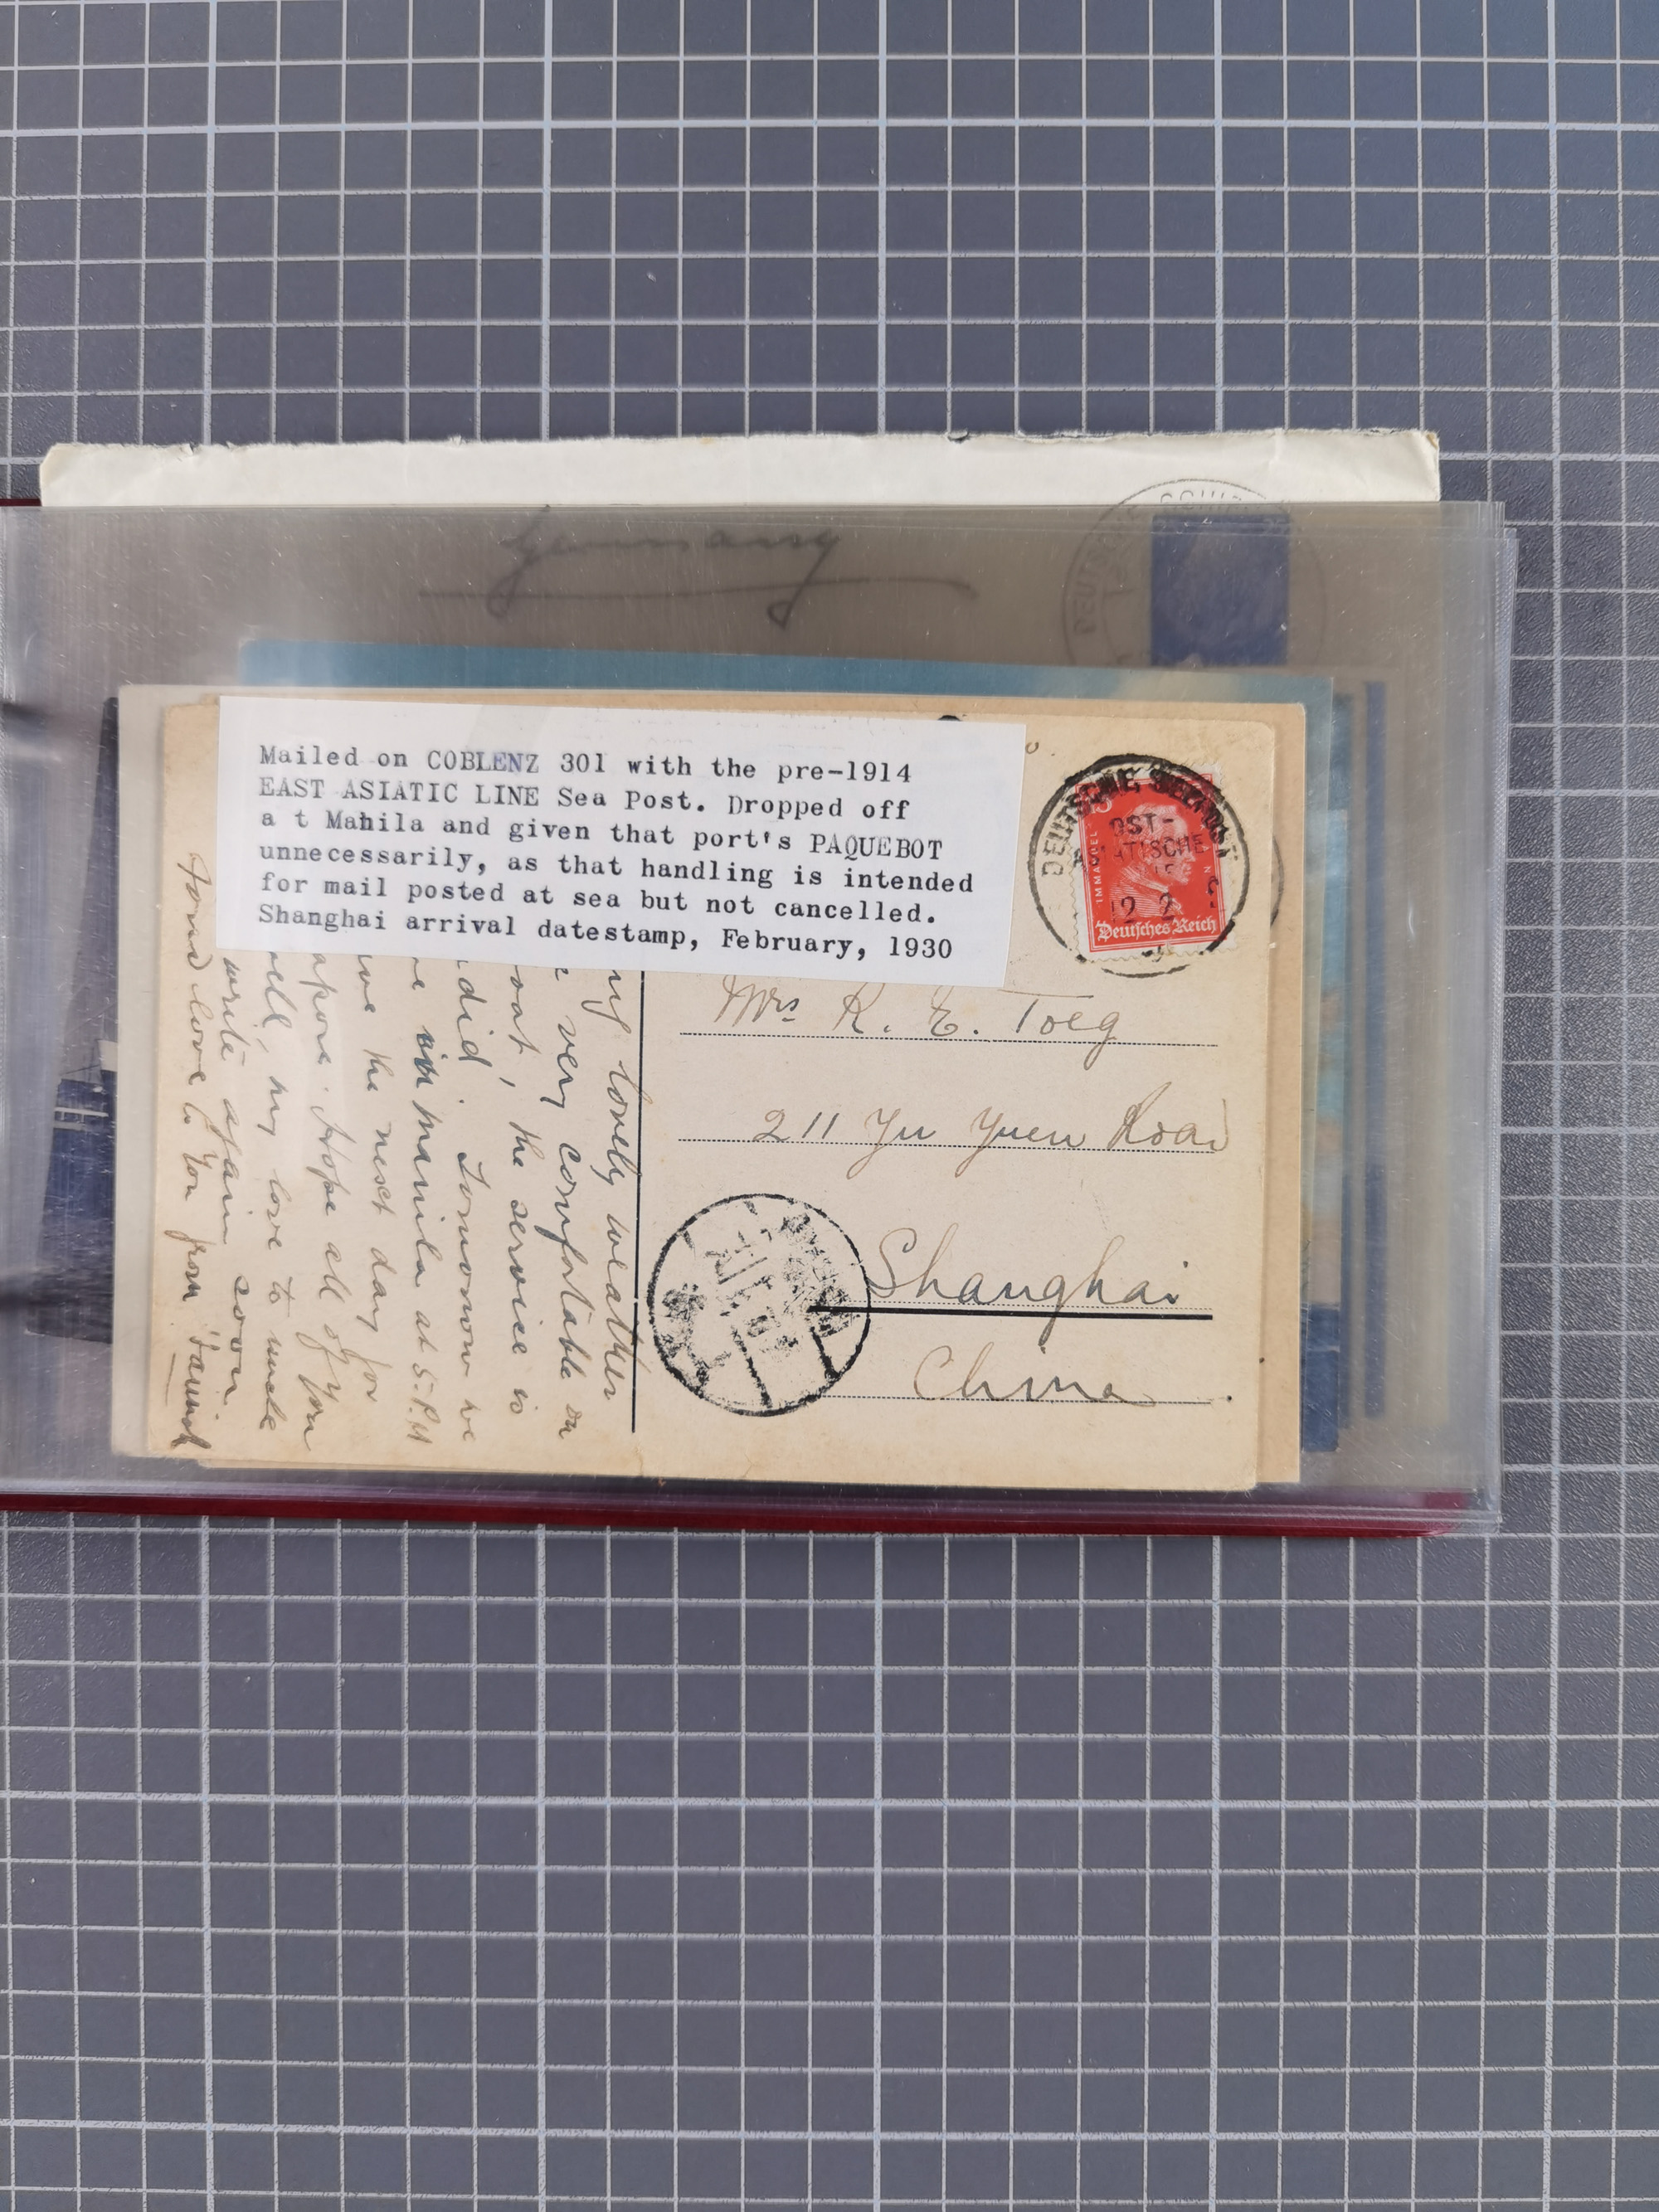 Germany
DEUTSCHE
Mailed on COBLENZ 301 with the pre-1914
EAST ASIATIC LINE Sea Post. Dropped off
a t Mahila and given that port's PAQUEBOT
unnecessarily, as that handling is intended
for mail posted at sea but not cancelled.
Shanghai arrival datestamp, February, 1930
DEUTSCHE SEEPOST
OST-
ASIATISCHE
12 2
IMMANUEL
Deutsches Reich
Mrs R. E. Toeg
211 Yu Yuen Road
Shanghai
China
lovely weather
very comfortable on
the service is
did. Tomorrow we
in Manila at 5. P.M
the next day for
apore. Hope all of you
my love to uncle
write again soon
Fond love to you from